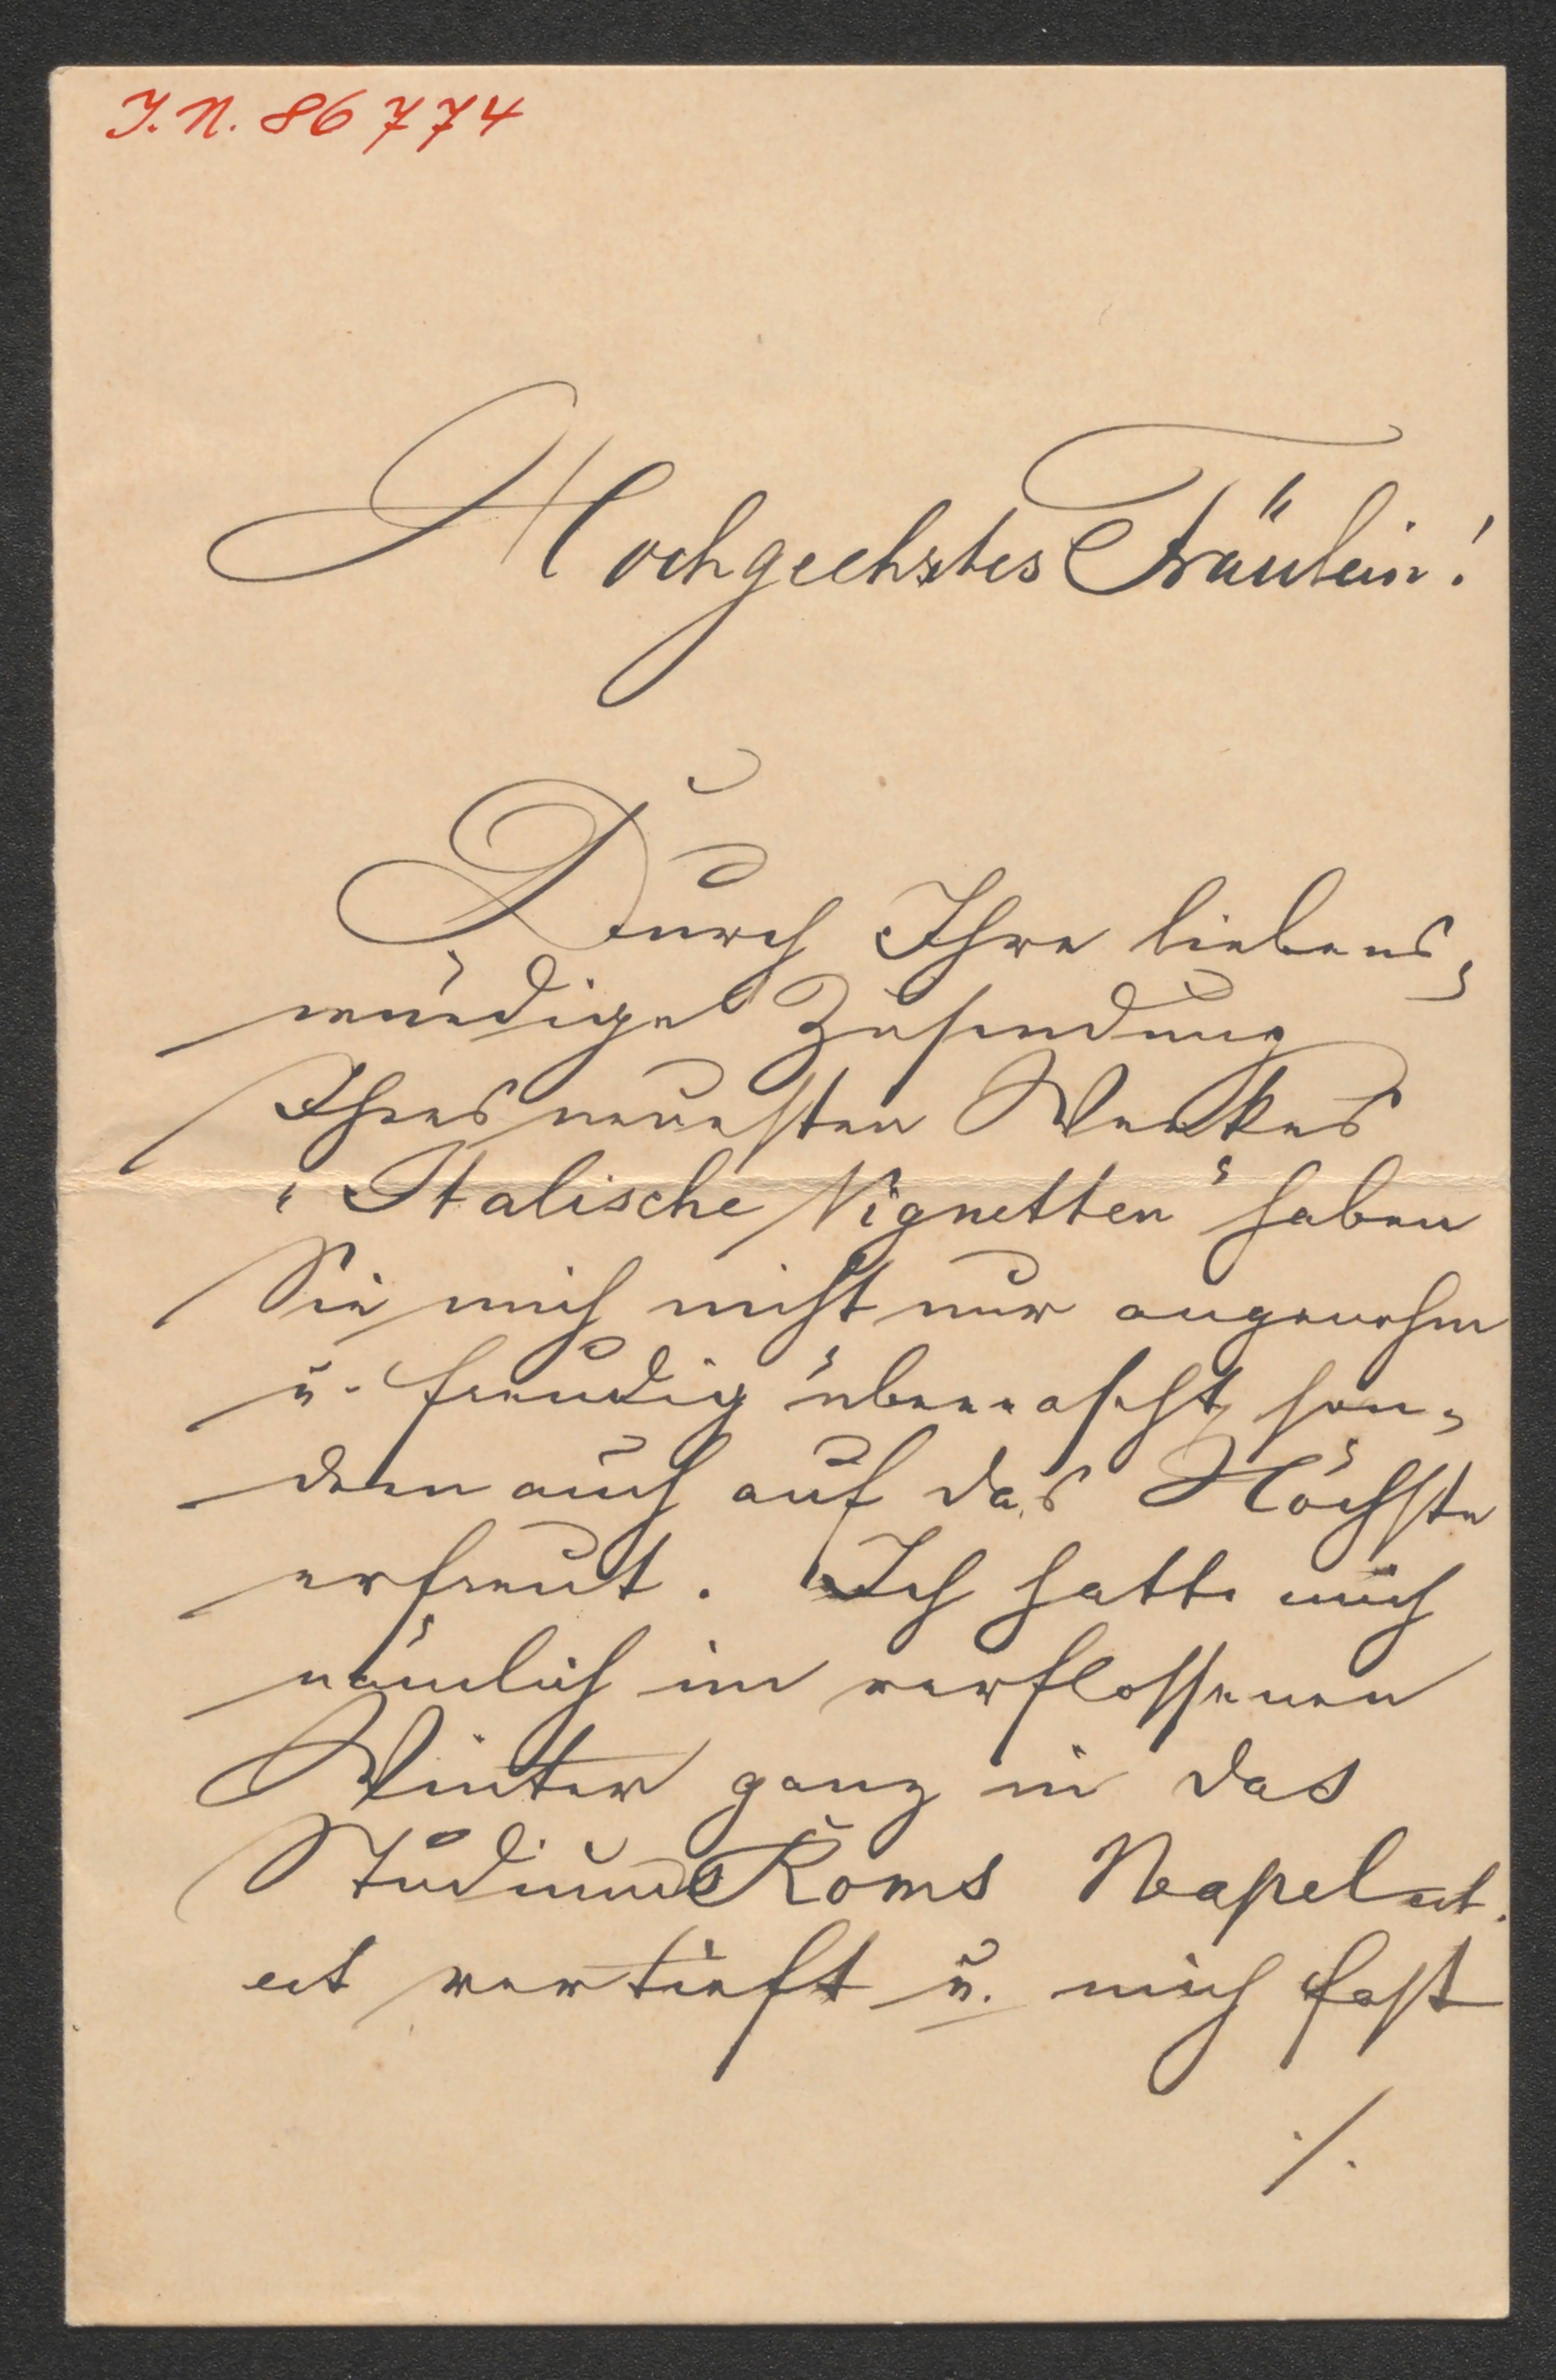 J. N. 86774
Hochgeehrtes Fräulein!
Durch Ihre liebens-
würdige Zusendung
Ihres neuesten Werkes
"Italische Vignetten" haben
Sie mich nicht nur angenehm
u. freudig überrascht, son-
dern auch auf das Höchste
erfreut. Ich hatte mich
nämlich im verflossenen
Winter ganz in das
Studium Roms Neapel ect.
ect vertieft u. mich fast
./.